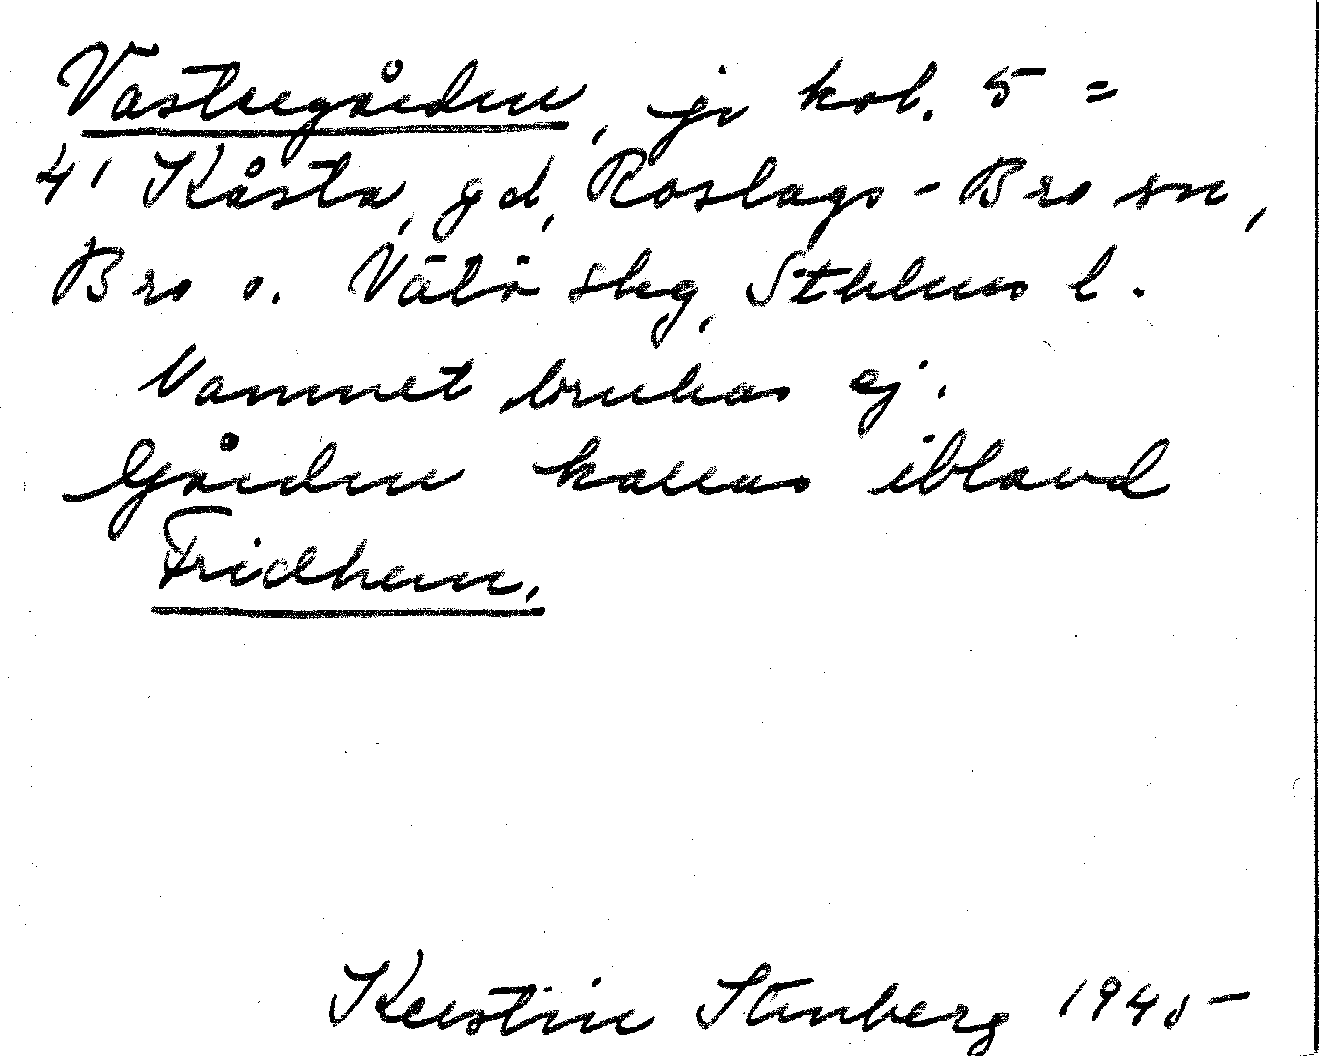 Västregården, jr kol. 5 =
4¹ Kåsta, gd, Roslags-Bro sn,
Bro o. Vätö skg, Sthlms l.
Namnet brukas ej.
Gården kallas ibland
Fridhem.
Kerstin Stenberg 1945